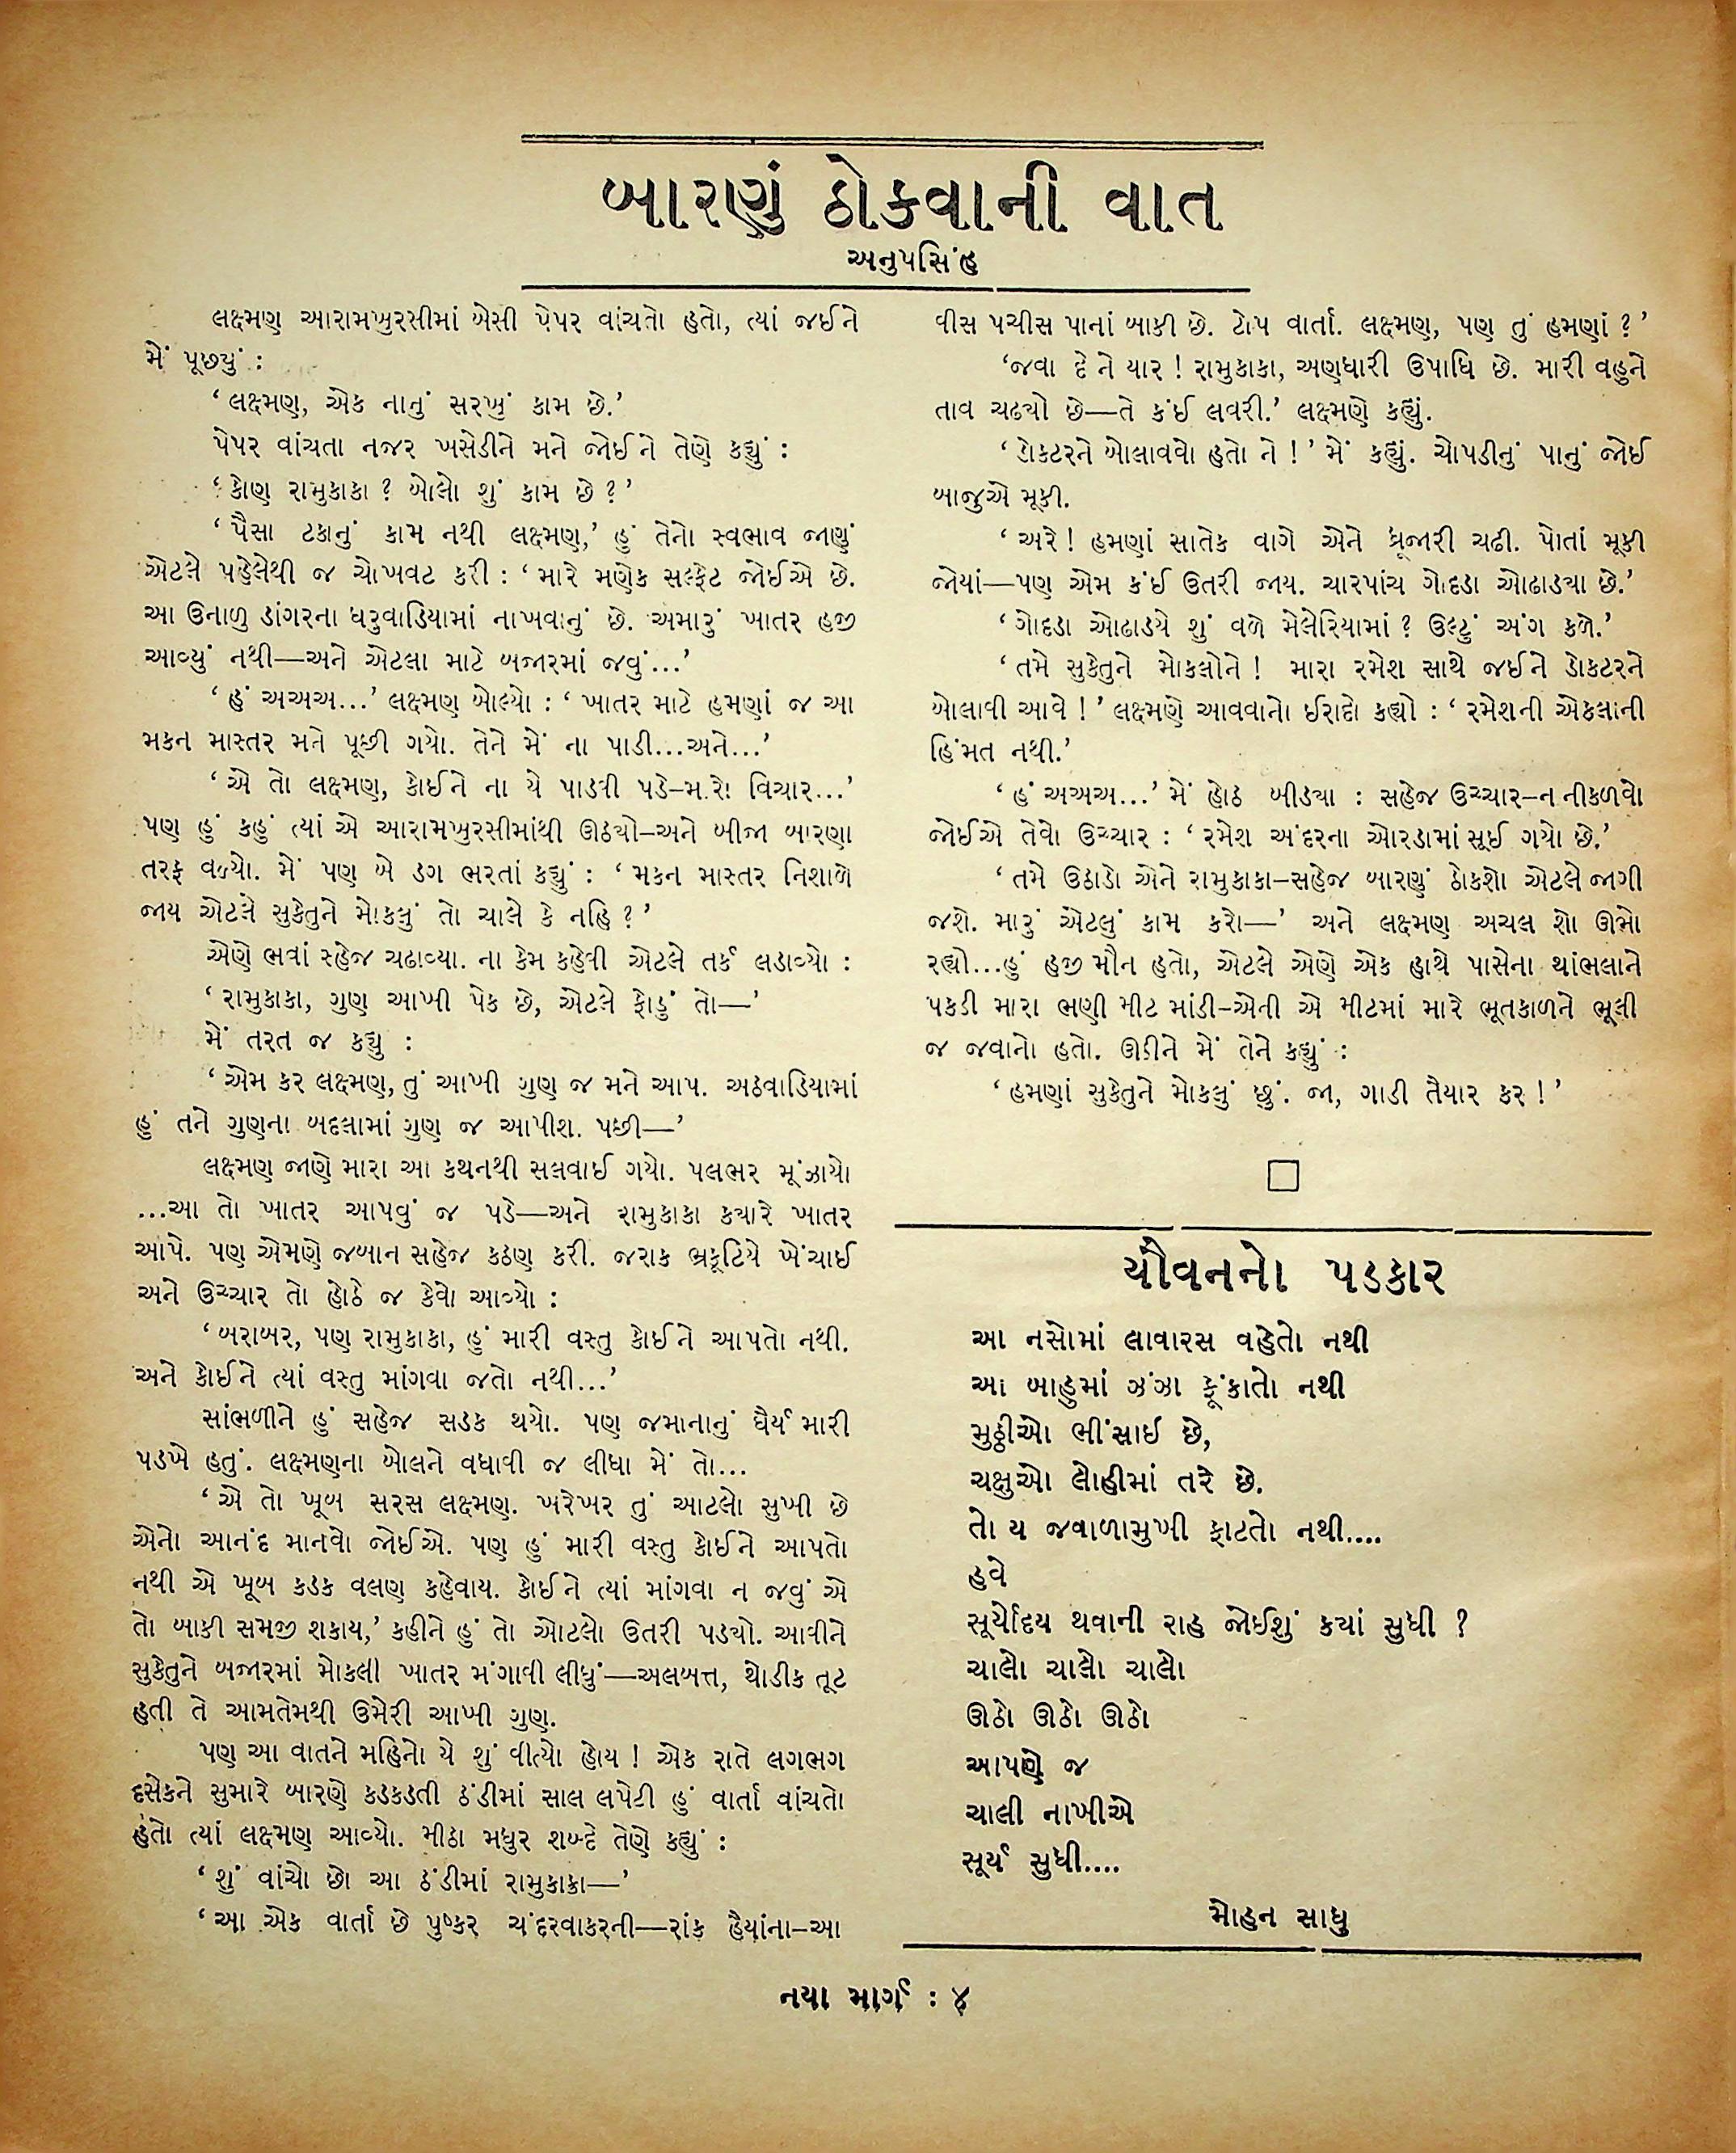 બારણું ઠોકવાની વાત
અનુપસિંહ
લક્ષ્મણ આરામખુરસીમાં બેસી પેપર વાંચતો હતો, ત્યાં જઈને
મેં પૂછ્યું :
‘લક્ષ્મણ, એક નાનું સરખું કામ છે.’
પેપર વાંચતા નજર ખસેડીને મને જોઈને તેણે કહ્યું :
‘કોણ રામુકાકા ? બોલો શું કામ છે ?’
‘પૈસા ટકાનું કામ નથી લક્ષ્મણ,’ હું તેનો સ્વભાવ જાણું
એટલે પહેલેથી જ ચોખવટ કરી : ‘મારે મણેક સલ્ફેટ જોઈએ છે.
આ ઉનાળુ ડાંગરના ધરુવાડિયામાં નાખવાનું છે. અમારું ખાતર હજી
આવ્યું નથી—અને એટલા માટે બજારમાં જવું...’
‘હં અઅઅ...’ લક્ષ્મણ બોલ્યો : ‘ખાતર માટે હમણાં જ આ
મકન માસ્તર મને પૂછી ગયો. તેને મેં ના પાડી...અને...’
‘એ તો લક્ષ્મણ, કોઈને ના યે પાડવી પડે–મારો વિચાર...’
પણ હું કહું ત્યાં એ આરામખુરસીમાંથી ઊઠ્યો–અને બીજા બારણા
તરફ વળ્યો. મેં પણ બે ડગ ભરતાં કહ્યું : ‘મકન માસ્તર નિશાળે
જાય એટલે સુકેતુને મોકલું તો ચાલે કે નહિ ?’
એણે ભવાં સ્હેજ ચઢાવ્યા. ના કેમ કહેવી એટલે તર્ક લડાવ્યો :
‘રામુકાકા, ગુણ આખી પેક છે, એટલે ફોડું તો—’
મેં તરત જ કહ્યુ :
‘એમ કર લક્ષ્મણ, તું આખી ગુણ જ મને આપ. અઠવાડિયામાં
હું તને ગુણના બદલામાં ગુણ જ આપીશ. પછી—’
લક્ષ્મણ જાણે મારા આ કથનથી સલવાઈ ગયો. પલભર મૂંઝાયો
...આ તો ખાતર આપવું જ પડે—અને રામુકાકા ક્યારે ખાતર
આપે. પણ એમણે જબાન સહેજ કઠણ કરી. જરાક ભ્રકૂટિયે ખેંચાઈ
અને ઉચ્ચાર તો હોઠે જ કેવો આવ્યો :
‘બરાબર, પણ રામુકાકા, હું મારી વસ્તુ કોઈને આપતો નથી.
અને કોઈને ત્યાં વસ્તુ માંગવા જતો નથી...’
સાંભળીને હું સહેજ સડક થયો. પણ જમાનાનું ધૈર્ય મારી
પડખે હતું. લક્ષ્મણના બોલને વધાવી જ લીધા મેં તો...
‘એ તો ખૂબ સરસ લક્ષ્મણ. ખરેખર તું આટલો સુખી છે
એનો આનંદ માનવો જોઈએ. પણ હું મારી વસ્તુ કોઈને આપતો
નથી એ ખૂબ કડક વલણ કહેવાય. કોઈને ત્યાં માંગવા ન જવું એ
તો બાકી સમજી શકાય,’ કહીને હું તો ઓટલો ઉતરી પડ્યો. આવીને
સુકેતુને બજારમાં મોકલી ખાતર મંગાવી લીધું—અલબત્ત, થોડીક તૂટ
હતી તે આમતેમથી ઉમેરી આખી ગુણ.
પણ આ વાતને મહિનો યે શું વીત્યો હોય ! એક રાતે લગભગ
દસેકને સુમારે બારણે કડકડતી ઠંડીમાં સાલ લપેટી હું વાર્તા વાંચતો
હતો ત્યાં લક્ષ્મણ આવ્યો. મીઠા મધુર શબ્દે તેણે કહ્યું :
‘શું વાંચો છો આ ઠંડીમાં રામુકાકા—’
‘આ એક વાર્તા છે પુષ્કર ચંદરવાકરની—રાંક હૈયાંના–આ
વીસ પચીસ પાનાં બાકી છે. ટોપ વાર્તા. લક્ષ્મણ, પણ તું હમણાં ?’
‘જવા દે ને યાર ! રામુકાકા, અણધારી ઉપાધિ છે. મારી વહુને
તાવ ચઢ્યો છે—તે કંઈ લવરી.’ લક્ષ્મણે કહ્યું.
‘ડોક્ટરને બોલાવવો હતો ને !’ મેં કહ્યું. ચોપડીનું પાનું જોઈ
બાજુએ મૂકી.
‘અરે ! હમણાં સાતેક વાગે એને ધ્રૂજારી ચઢી. પોતાં મૂકી
જોયાં—પણ એમ કંઈ ઉતરી જાય. ચારપાંચ ગોદડા ઓઢાડ્યા છે.’
‘ગોદડા ઓઢાડયે શું વળે મેલેરિયામાં ? ઉલ્ટું અંગ કળે.’
‘તમે સુકેતુને મોકલોને ! મારા રમેશ સાથે જઈને ડોકટરને
બોલાવી આવે !’ લક્ષ્મણે આવવાનો ઈરાદો કહ્યો : ‘રમેશની એકલાની
હિંમત નથી.’
‘હં અઅઅ...’ મેં હોઠ બીડ્યા : સહેજ ઉચ્ચાર–ન નીકળવો
જોઈએ તેવો ઉચ્ચાર : ‘રમેશ અંદરના ઓરડામાં સૂઈ ગયો છે.’
‘તમે ઉઠાડો એને રામુકાકા–સહેજ બારણું ઠોકશો એટલે જાગી
જશે. મારું એટલું કામ કરો—’ અને લક્ષ્મણ અચલ શો ઊભો
રહ્યો...હું હજી મૌન હતો, એટલે એણે એક હાથે પાસેના થાંભલાને
પકડી મારા ભણી મીટ માંડી–એની એ મીટમાં મારે ભૂતકાળને ભૂલી
જ જવાનો હતો. ઊઠીને મેં તેને કહ્યું :
‘હમણાં સુકેતુને મોકલું છું. જા, ગાડી તૈયાર કર !’
યૌવનનો પડકાર
આ નસોમાં લાવારસ વહેતો નથી
આ બાહુમાં ઝંઝા ફૂંકાતો નથી
મુઠ્ઠીઓ ભીંસાઈ છે,
ચક્ષુઓ લોહીમાં તરે છે.
તો ય જવાળામુખી ફાટતો નથી....
હવે
સૂર્યોદય થવાની રાહ જોઈશું કયાં સુધી ?
ચાલો ચાલો ચાલો
ઊઠો ઊઠો ઊઠો
આપણે જ
ચાલી નાખીએ
સૂર્ય સુધી....
મોહન સાધુ
નયા માર્ગ : ૪